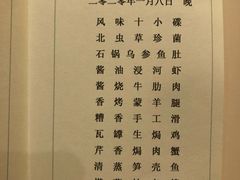 二零二零年一月八日 晚
风味十小碟
北虫草珍菌
石锅乌参鱼肚
酱油浸河虾
酱烧牛肋肉
香烤蒙羊腿
糟香手工滑
瓦罐生焗鸡
芹香焗肉蟹
清蒸笋壳鱼